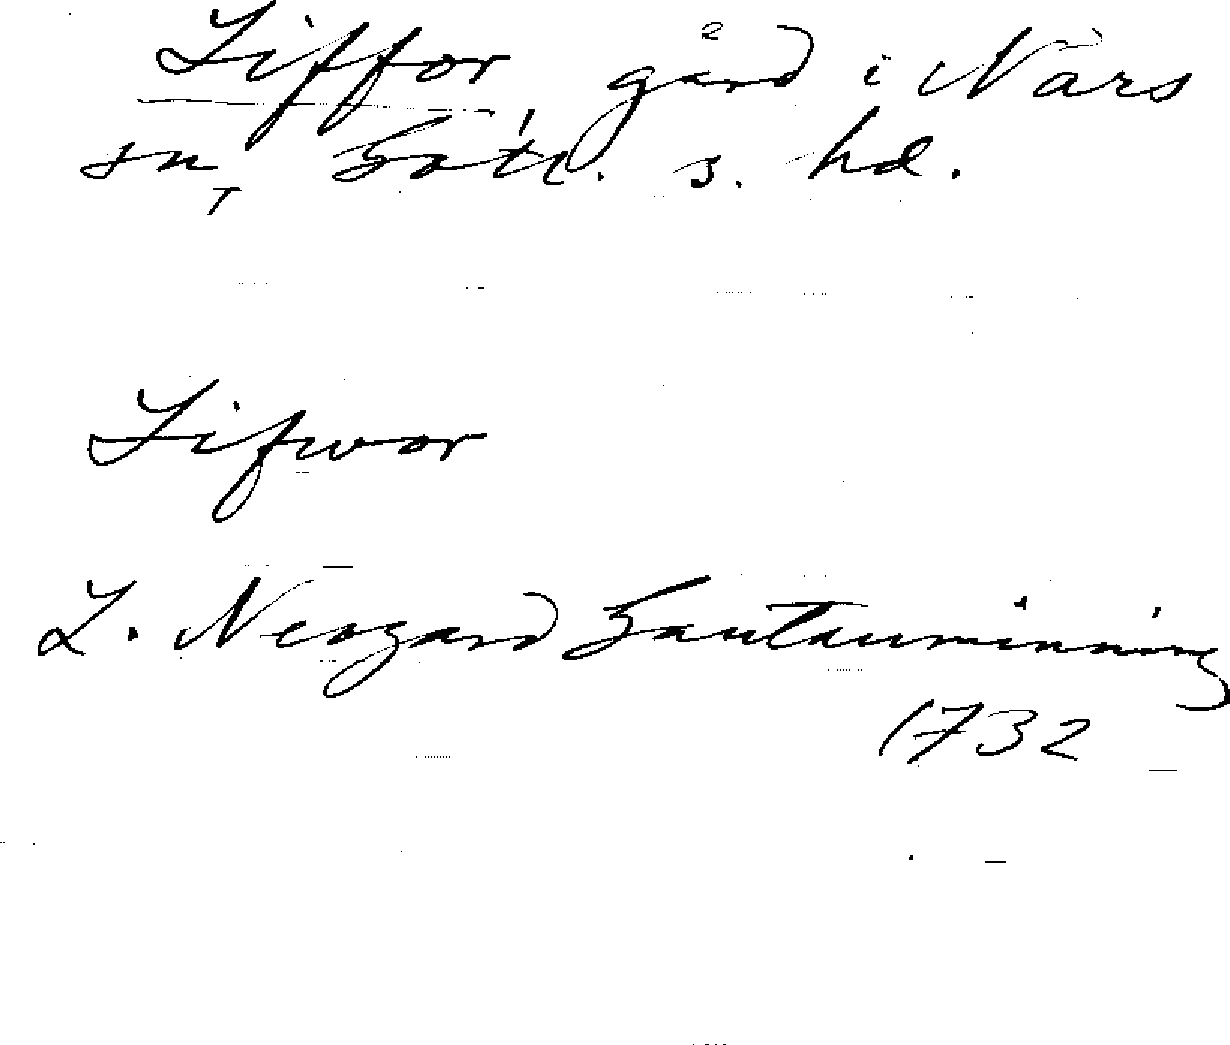 Liffor, gård i När s
sn, Gotl. s. hd.
Lifwor
L. Neogard Gautauminning
1732